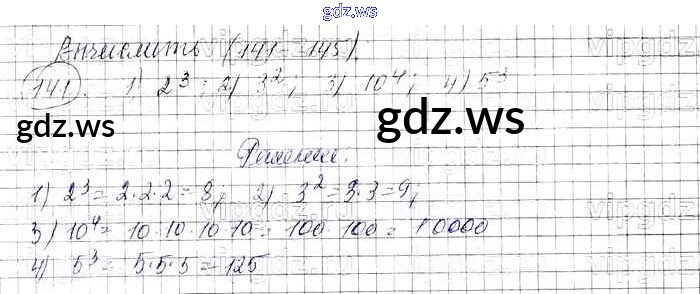 gdz.ws
Вычислить (141 - 145).
141. 1) 2³; 2) 3²; 3) 10⁴; 4) 5³
gdz.ws gdz.ws
Решение.
1) 2³ = 2·2·2 = 8; 2) 3² = 3·3 = 9;
3) 10⁴ = 10·10·10·10 = 100·100 = 10000
4) 5³ = 5·5·5 = 125